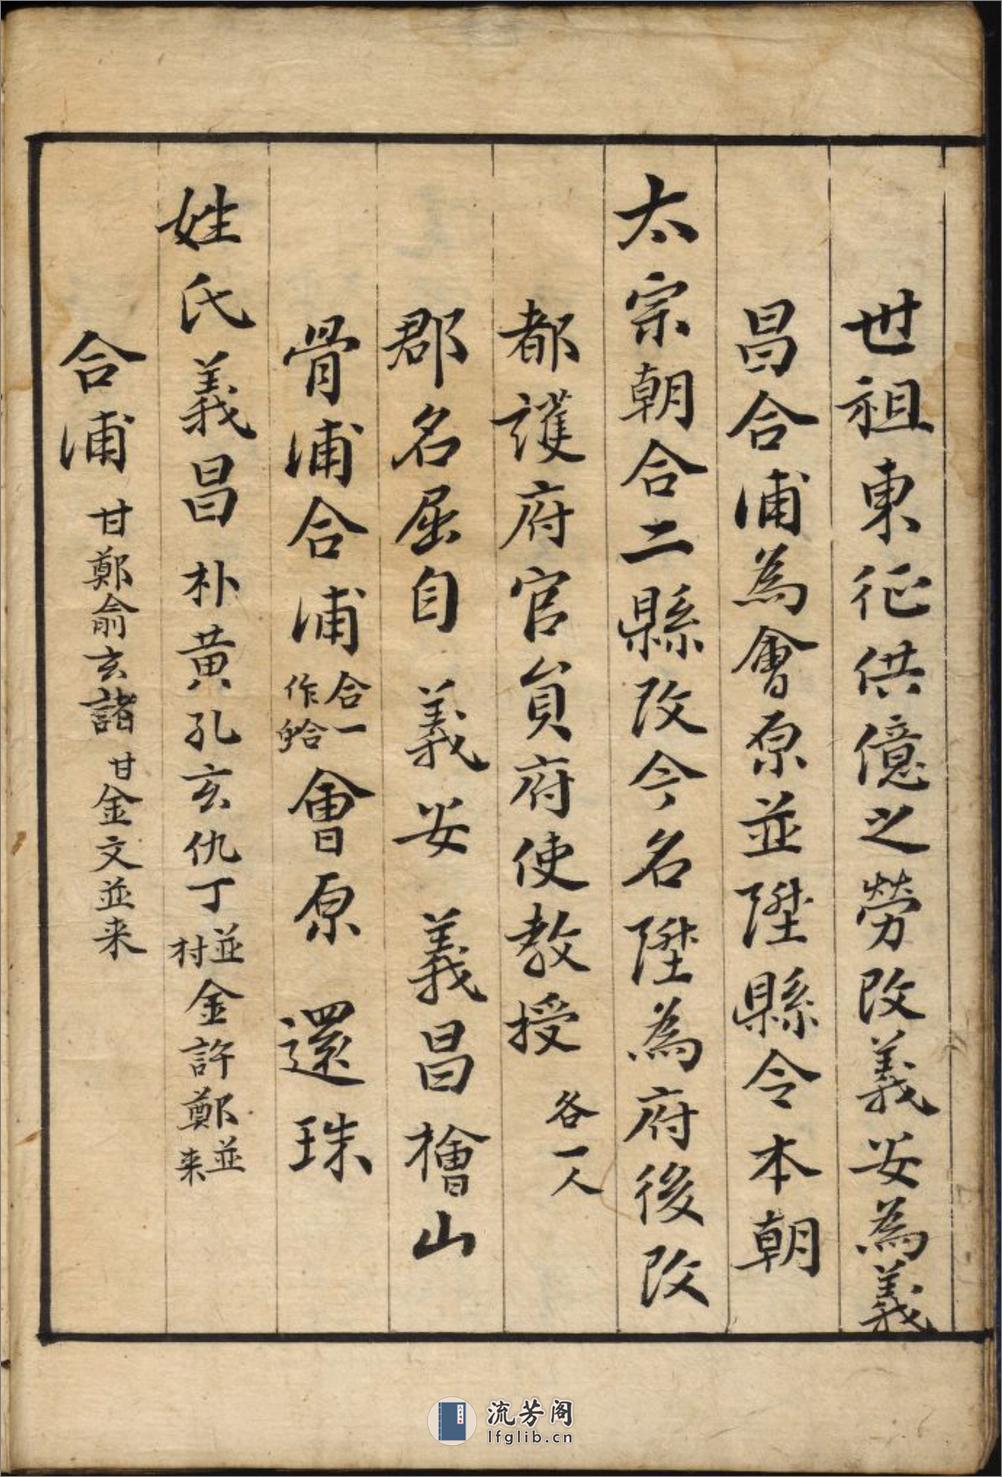 世祖東征供億之勞改義安為義
昌合浦為會原並陞縣令本朝
太宗朝合二縣改今名陞為府後改
都護府官員府使教授各一人
郡名屈自 義安 義昌檜山
骨浦合浦合一作蛤會原 還珠
姓氏義昌朴黄孔玄仇丁並村金許鄭並来
合浦甘鄭俞玄諸甘金文並来
流芳阁
lfglib.cn